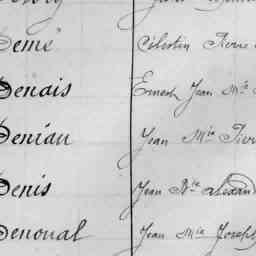 Demé Célestin Pierre
Denais Ernest Jean Mie
Deniau Jean Mie Pierre
Denis Jean Bte
Denoual Jean Mie Joseph